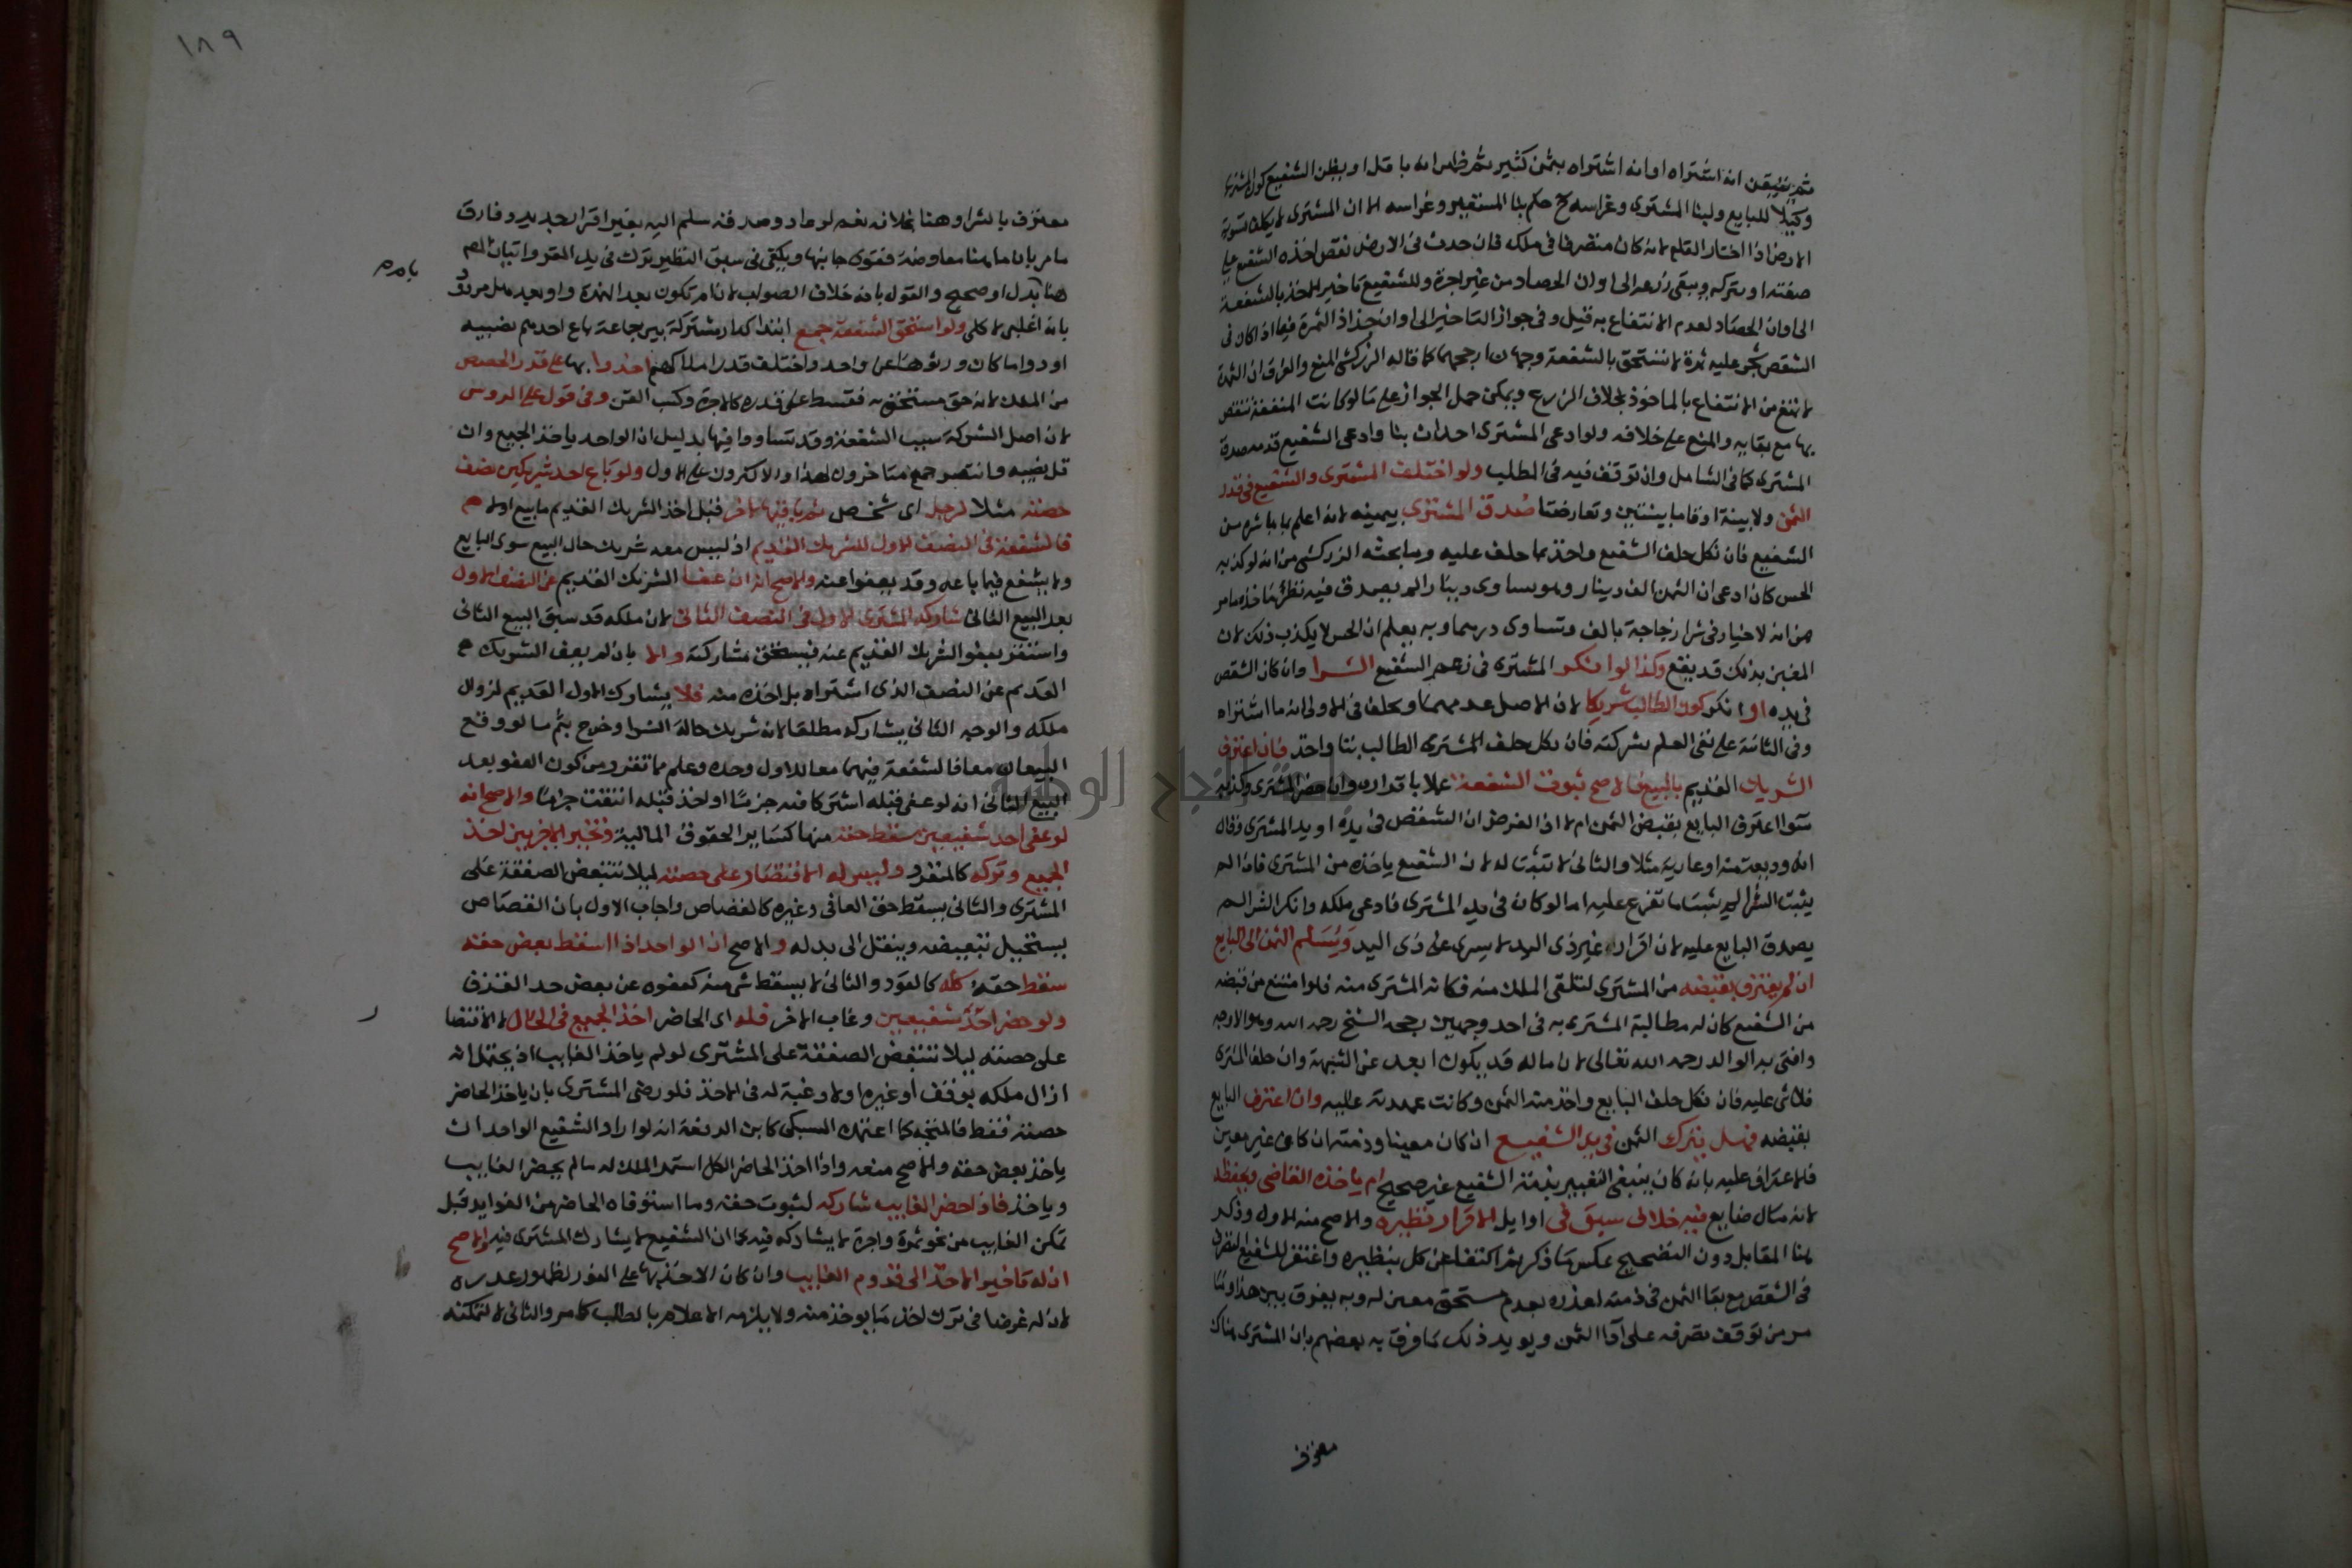 ثم يتيقن انه اشتراه او انه اشتراه بثمن كثير ثم ظهر انه باقل او بظن الشفيع كون المشترى
وكيلا للبايع ولبنا المشترى وغراسه ح حكم بنا المستعير وغراسه الا ان المشترى لا يكلف تسوية
الارض اذا اختار القلع لانه كان متصرفا فى ملكه فان حدث فى الارض نقص اخذه الشفيع على
صفته او يتركه ويبقى زرعه الى اوان الحصاد من غير اجرة وللشفيع تاخير الاخذ بالشفعة
الى اوان الحصاد لعدم الانتفاع به قبل وفى جواز التاخير الى اوان جذاذ الثمرة فيما اذا كان فى
الشقص شجر عليه ثمرة لا تستحق بالشفعة وجهان ارجحهما كما قاله الزركشى المنع والفرق ان الثمرة
لا تمنع من الانتفاع بالماخوذ بخلاف الزرع ويمكن حمل الجواز على ما لو كانت المنفعة تنقص
بها مع بقايه والمنع على خلافه ولو ادعى المشترى احداث بنا وادعى الشفيع قدمه صدق
المشترى كما فى الشامل وان توقف فيه فى المطلب ولو اختلف المشترى والشفيع فى قدر
الثمن ولا بينة او اقاما بينتين وتعارضتا صدق المشترى بيمينه لانه اعلم بما باشره من
الشفيع فان نكل حلف الشفيع واخذ بما حلف عليه وما بحثه الزركشى من انه لو كذبه
الحس كان ادعى ان الثمن الف دينار وهو يساوى دينارا لم يصدق فيه نظر لما مر
من انه لا خيار فى شرا زجاجة بالف وتساوى درهما وبه يعلم ان الحس لا يكذب ذلك لان
الغبن بذلك قد يقع وكذا لو انكر المشترى فى زعم الشفيع الشرا وان كان الشقص
فى يده او انكر كون الطالب شريكا لان الاصل عدمهما ويحلف فى الاولى انه ما اشتراه
وفى الثانية على نفى العلم بشركته فان نكل حلف المشترى الطالب بتا واخذ فان اعترف
الشريك القديم بالبيع فالاصح ثبوت الشفعة عملا باقراره وان حضر المشترى وكذبه
سوا اعترف البايع بقبض الثمن ام لا اذ الفرض ان الشقص فى يده او يد المشترى وقال
انه وديعة منه او عارية مثلا والثانى لا تثبت له لان الشفيع ياخذه من المشترى فاذا لم
يثبت الشرا لم يثبت ما تفرع عليه اما لو كان فى يد المشترى فادعى ملكه وانكر الشرا لم
يصدق البايع عليه لان اقرار غير ذى اليد لا يسرى على ذى اليد ويسلم الثمن الى البايع
ان لم يعترف بقبضه من المشترى لتلقى الملك منه فكانه المشترى منه فلو امتنع من قبضه
من الشفيع كان له مطالبة المشترى به فى احد وجهين رجحه الشيخ رحمه الله وهو الاوجه
وافتى به الوالد رحمه الله تعالى لان ماله قد يكون ابعد عن الشبهة وان حلف المشترى
فلا شى عليه فان نكل حلف البايع واخذ منه الثمن وكانت عهدته عليه وان اعترف البايع
بقبضه فهل يترك الثمن فى يد الشفيع ان كان معينا وذمته ان كان غير معين
فالاعتراض عليه بانه كان ينبغى التعبير بذمة الشفيع غير صحيح ام ياخذه القاضى ويحفظه
لانه مال ضايع فيه خلاف سبق فى اوايل الاقرار نظيره والاصح منه الاول وذكر
هنا المقابل دون التصحيح عكس ما ذكر ثم اكتفا عن كل بنظيره واغتفر للشفيع التصرف
فى الشقص مع بقا الثمن فى ذمته لعذره بعدم مستحق معين له وبه يفرق بين هذا وما
مر من توقف تصرفه على ادا الثمن ويويد ذلك ما فرق به بعضهم بان المشترى هناك
معترف
١٨٩
معترف بالشرا وهنا بخلافه نعم لو عاد وصدقه سلم اليه بغير اقرار جديد وفارق
ما مر بان ما هنا معاوضة فقوى جانبها ويكتفى فى سبق النظير ترك فى يد المقر واتيان المص
هنا بدل او صحيح والقول بانه خلاف الصواب لان ام تكون بعد الهمزة واو بعد هل مردود
بانه اغلبى لا كلى ولو استحق الشفعة جمع ابتدا كدار مشتركة بين جماعة باع احدهم نصيبه
او دواما كان ورثوها عن واحد واختلف قدر املاكهم اخذوا بها على قدر الحصص
من الملك لانه حق مستحق به فقسط على قدره كالاجرة وكسب القن وفى قول على الروس
لان اصل الشركة سبب الشفعة وقد تساووا فيها بدليل ان الواحد ياخذ الجميع وان
قل نصيبه وانتصر جمع متاخرون لهذا والاكثرون على الاول ولو باع احد شريكين نصف
حصته مثلا لرجل اى شخص ثم باقيها لاخر قبل اخذ الشريك القديم ما بيع اولا
فالشفعة فى النصف الاول للشريك القديم اذ ليس معه شريك حال البيع سوى البايع
ولا يشفع فيما باعه وقد يعفو عنه والاصح انه ان عفا الشريك القديم عن النصف الاول
بعد البيع الثانى شاركه المشترى الاول فى النصف الثانى لان ملكه قد سبق البيع الثانى
واستقر بعفو الشريك القديم عنه فيستحق مشاركته والا بان لم يعف الشريك
القديم عن النصف الذى اشتراه بل اخذه منه فلا يشارك الاول القديم لزوال
ملكه والوجه الثانى يشاركه مطلقا لانه شريك حالة الشرا وخرج بثم ما لو وقع
البيعان معا فالشفعة فيهما معا للاول وحده وعلم مما تقرر من كون العفو بعد
البيع الثانى انه لو عفى قبله اشتركا فيه جزما او اخذ قبله انتفت جزما والاصح انه
لو عفى احد شفيعين سقط حقه منها كساير الحقوق المالية وتخير الاخر بين اخذ
الجميع وتركه كالمنفرد وليس له الاقتصار على حصته ليلا تتبعض الصفقة على
المشترى والثانى يسقط حق العافى وغيره كالقصاص واجاب الاول بان القصاص
يستحيل تبعيضه وينقل الى بدله والاصح ان الواحد اذا اسقط بعض حقه
سقط حقه كله كالقود والثانى لا يسقط شى منه كعفوه عن بعض حد القذف
ولو حضر احد شفيعين وغاب الاخر فله اى الحاضر اخذ الجميع فى الحال لا الاقتصار
على حصته ليلا تتبعض الصفقة على المشترى لو لم ياخذ الغايب اذ يحتمل انه
ازال ملكه بوقف او غيره او لا رغبة له فى الاخذ فلو رضى المشترى بان ياخذ الحاضر
حصته فقط فالمتجه كما اعتمده السبكى كابن الرفعة انه لو اراد الشفيع الواحد ان
ياخذ بعض حقه والاصح منعه واذا اخذ الحاضر الكل استمر الملك له ما لم يحضر الغايب
وياخذ فاذا حضر الغايب شاركه لثبوت حقه وما استوفاه الحاضر من الفوايد قبل
تمكن الغايب من نحو ثمرة واجرة لا يشاركه فيه كما ان الشفيع لا يشارك المشترى فيه والاصح
ان له تاخير الاخذ الى قدوم الغايب وان كان الاخذ بها على الفور لظهور عذره
لان له غرضا فى ترك اخذ ما يوخذ منه ولا يلزمه الاعلام بالطلب كما مر والثانى لا لتمكنه
جامعة النجاح الوطنية